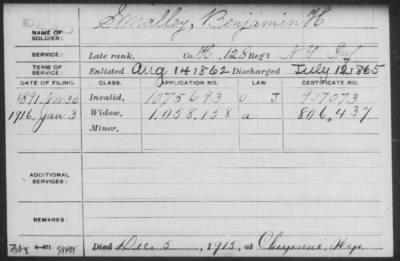 NAME OF SOLDIER: Smalley, Benjamin H
SERVICE: Late rank, Co. H, 128 Reg't N.Y. Inf
TERM OF SERVICE: Enlisted Aug 14 1862 Discharged July 12, 1865
DATE OF FILING. CLASS. APPLICATION NO. LAW. CERTIFICATE NO.
1891 Invalid, 1075693 J 707073
1916, Jan 3 Widow, 1.058.158 a 806.437
Minor,
ADDITIONAL SERVICES:
REMARKS:
Died Dec. 5, 1915, at Cheyenne, Wyo